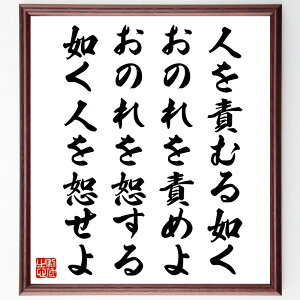 人を責むる如く
おのれを責めよ
おのれを恕する
如く人を恕せよ